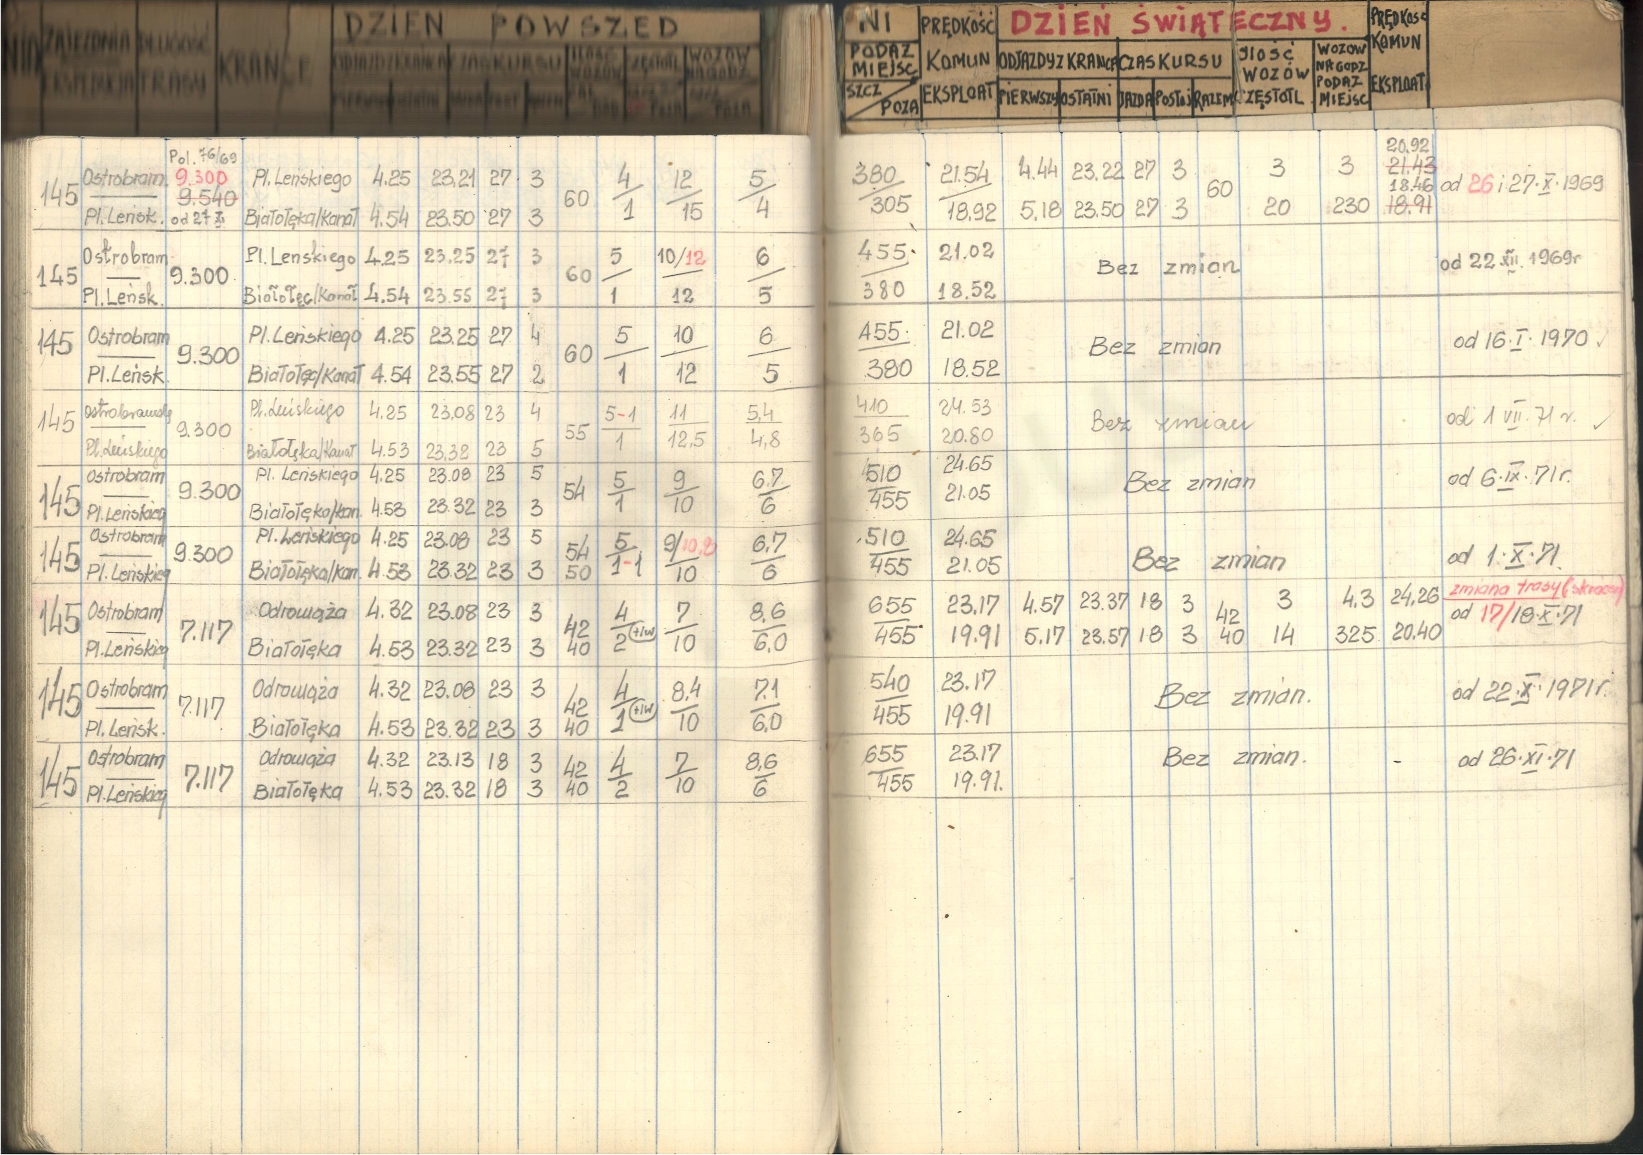 DZIEŃ POWSZED NI PRĘDKOŚĆ DZIEŃ ŚWIĄTECZNY. PRĘDKOŚĆ
ZAJEZDNIA DŁUGOŚĆ KRAŃCE ILOŚĆ WOZÓW PODAŻ MIEJSC KOMUN ODJAZDY Z KRAŃCA CZAS KURSU ILOŚĆ WOZÓW WOZÓW NA GODZ PODAŻ MIEJSC KOMUN
EKSPEDYCJA TRASY SZCZ POZA EKSPLOAT PIERWSZY OSTATNI JAZDA POSTÓJ RAZEM CZĘSTOTL EKSPLOAT
Pol. 76/69 20.92
145 Ostrobram. 9.300 Pl. Leńskiego 4.25 23.21 27 3 60 4 12 5 380 21.54 4.44 23.22 27 3 60 3 3 21.43 od 26 i 27.X.1969
9.540 18.46
Pl. Leńsk. od 27 X Białołęka/Kanał 4.54 23.50 27 3 1 15 4 305 18.92 5.18 23.50 27 3 20 230 18.91
145 Ostrobram 9.300 Pl. Leńskiego 4.25 23.25 27 3 60 5 10/12 6 455. 21.02 Bez zmian od 22.XII.1969r
Pl. Leńsk. Białołęc/Kanał 4.54 23.55 27 3 1 12 5 380 18.52
145 Ostrobram 9.300 Pl. Leńskiego 4.25 23.25 27 4 60 5 10 6 455. 21.02 Bez zmian od 16.I.1970 ✓
Pl. Leńsk. Białołęc/Kanał 4.54 23.55 27 2 1 12 5 380 18.52
145 Ostrobramsk 9.300 Pl. Leńskiego 4.25 23.08 23 4 55 5-1 11 5,4 410 24.53 Bez zmian od 1 VII. 71 r. ✓
Pl. Leńskiego Białołęka/Kanał 4.53 23.38 23 5 1 12,5 4,8 365 20.80
145 Ostrobram 9.300 Pl. Leńskiego 4.25 23.08 23 5 54 5 9 6.7 510 24.65 Bez zmian od 6.IX.71r.
Pl. Leńskieg Białołęka/kan. 4.53 23.32 23 3 1 10 6 455 21.05
145 Ostrobram 9.300 Pl. Leńskiego 4.25 23.08 23 5 54 5 9/10,8 6,7 510 24.65 Bez zmian od 1.X.71.
Pl. Leńskieg Białołęka/kan. 4.53 23.32 23 3 50 1-1 10 6 455 21.05
145 Ostrobram 7.117 Odrowąża 4.32 23.08 23 3 42 4 7 8,6 655 23.17 4.57 23.37 18 3 42 3 4,3 24,26 zmiana trasy (skrócen)
od 17/18.X.71
Pl. Leńskieg Białołęka 4.53 23.32 23 3 40 2 (+1w) 10 6,0 455 19.91 5.17 23.57 18 3 40 14 325 20.40
145 Ostrobram 7.117 Odrowąża 4.32 23.08 23 3 42 4 8,4 7.1 540 23.17 Bez zmian. od 22.X.1971r.
Pl. Leńsk. Białołęka 4.53 23.32 23 3 40 1 (+1w) 10 6,0 455 19.91
145 Ostrobram 7.117 Odrowąża 4.32 23.13 18 3 42 4 7 8,6 655 23.17 Bez zmian. - od 26.XI.71
Pl. Leńskieg Białołęka 4.53 23.32 18 3 40 2 10 6 455 19.91.